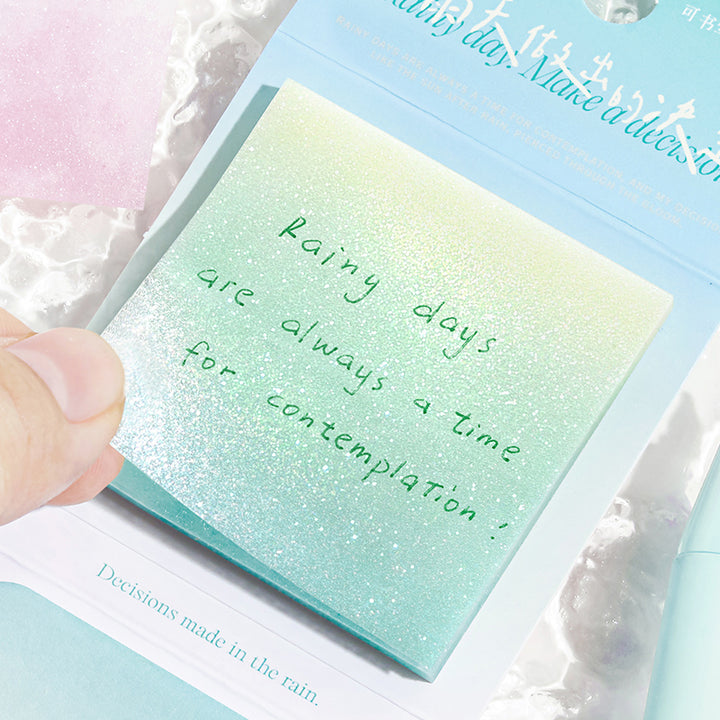 雨天做出的决
可书
Rainy day. Make a decision
RAINY DAYS ARE ALWAYS A TIME FOR CONTEMPLATION, AND MY DECISIO
LIKE THE SUN AFTER RAIN, PIERCED THROUGH THE GLOOM.
Rainy days
are always a time
for contemplation!
Decisions made in the rain.